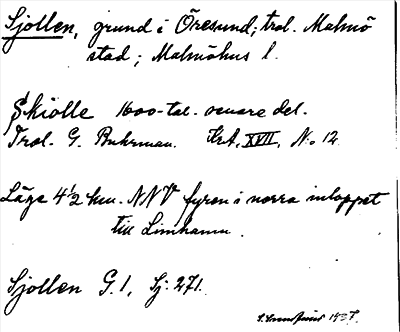 Sjollen, grund i Öresund; trol. Malmö
stad; Malmöhus l.
Skiolle 1600-tal. senare del.
Trol. G. Buhrman. Krt, XVII, No 12
Läge 4½ km. NNV fyren i norra inloppet
till Limhamn.
Sjollen G. 1, Sj. 271.